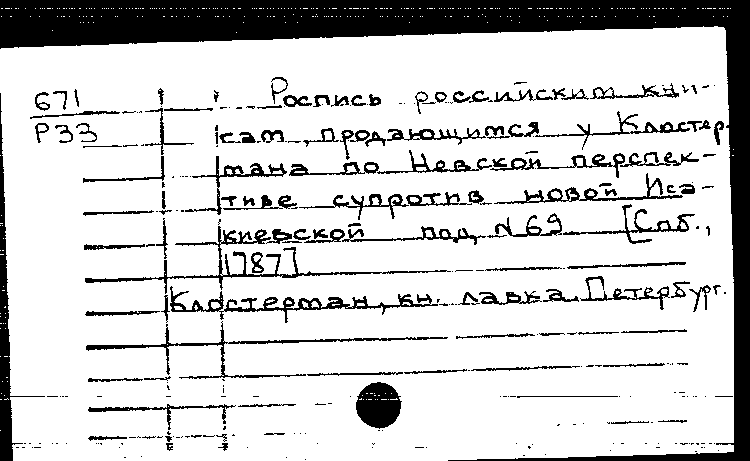 671
Р33
Роспись российским кни-
гам, продающимся у Клостер-
мана по Невской перспек-
тиве супротив новой Иса-
киевской под N 69 [Спб.,
1787]
Клостерман, кн. лавка. Петербург.